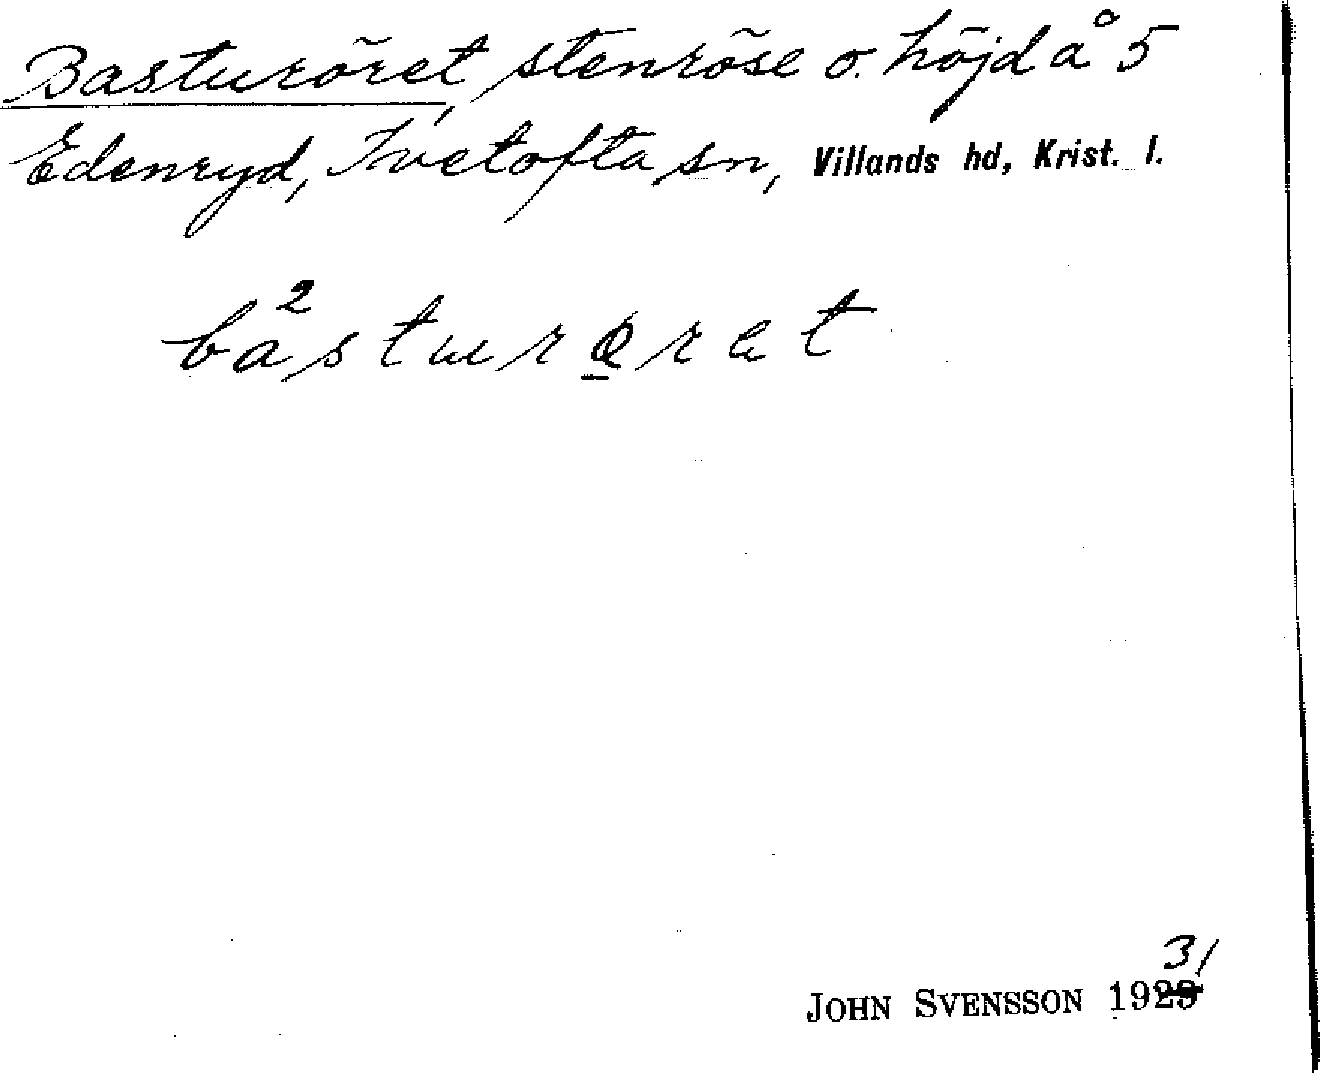 Basturöret, stenröse o. höjd å 5
Edenryd, Ivetofta sn, Villands hd, Krist. l.
ba²sturøret
31
JOHN SVENSSON 1929